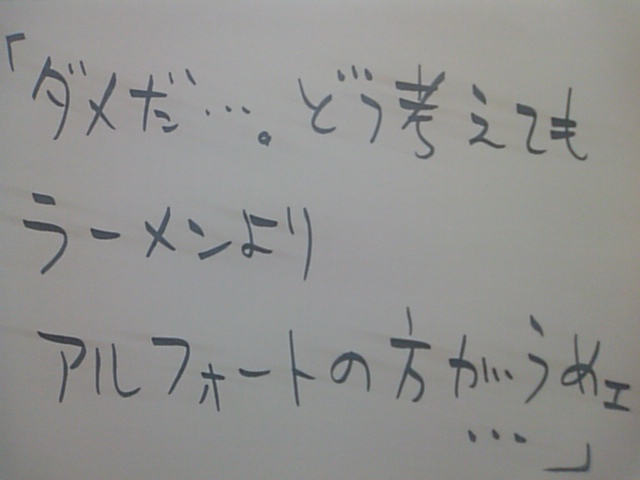 「ダメだ…。どう考えても
ラーメンより
アルフォートの方がうめェ
…」